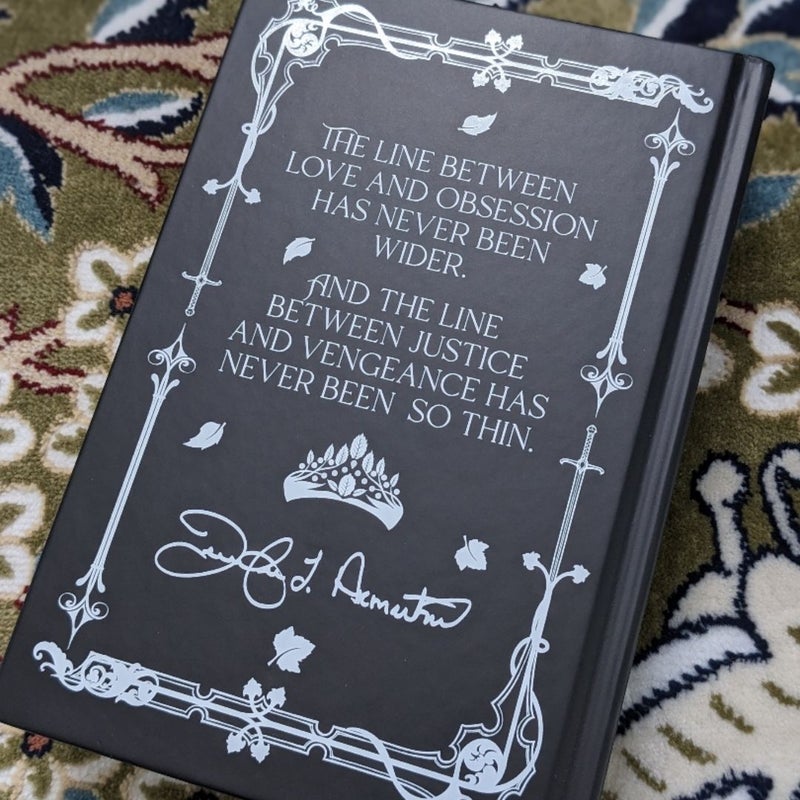 THE LINE BETWEEN
LOVE AND OBSESSION
HAS NEVER BEEN
WIDER.
AND THE LINE
BETWEEN JUSTICE
AND VENGEANCE HAS
NEVER BEEN SO THIN.
Jennifer L. Armentrout